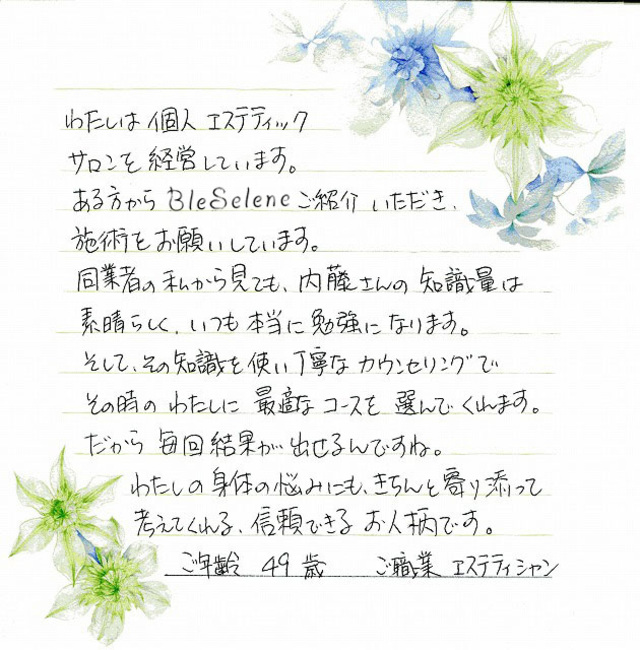 わたしは 個人 エステティック
サロンを 経営しています。
ある方から BleSelene ご紹介 いただき、
施術を お願いしています。
同業者の 私から見ても、内藤さんの 知識量は
素晴らしく、いつも 本当に 勉強に なります。
そして、その知識を 使い 丁寧な カウンセリングで
その時の わたしに 最適な コースを 選んで くれます。
だから 毎回 結果が 出せるんですね。
わたしの 身体の 悩みにも、きちんと 寄り添って
考えてくれる、信頼できる お人柄です。
ご年齢 49 歳 ご職業 エステティシャン